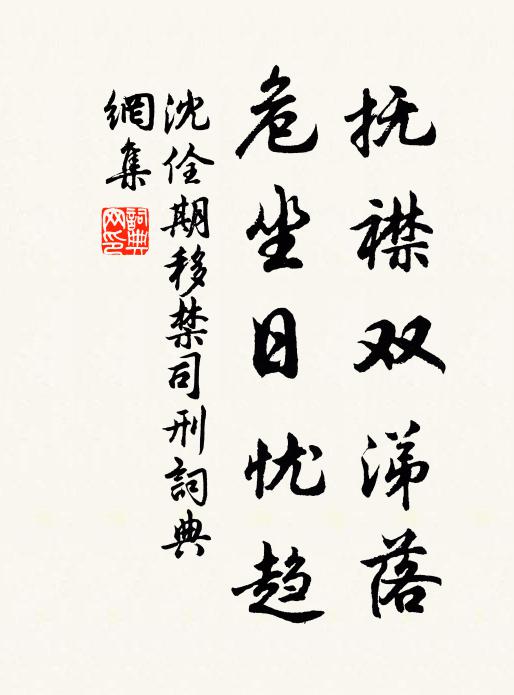 抚襟双涕落
危坐日忧趋
沈佺期移禁司刑詞典
網集
詞典
网印